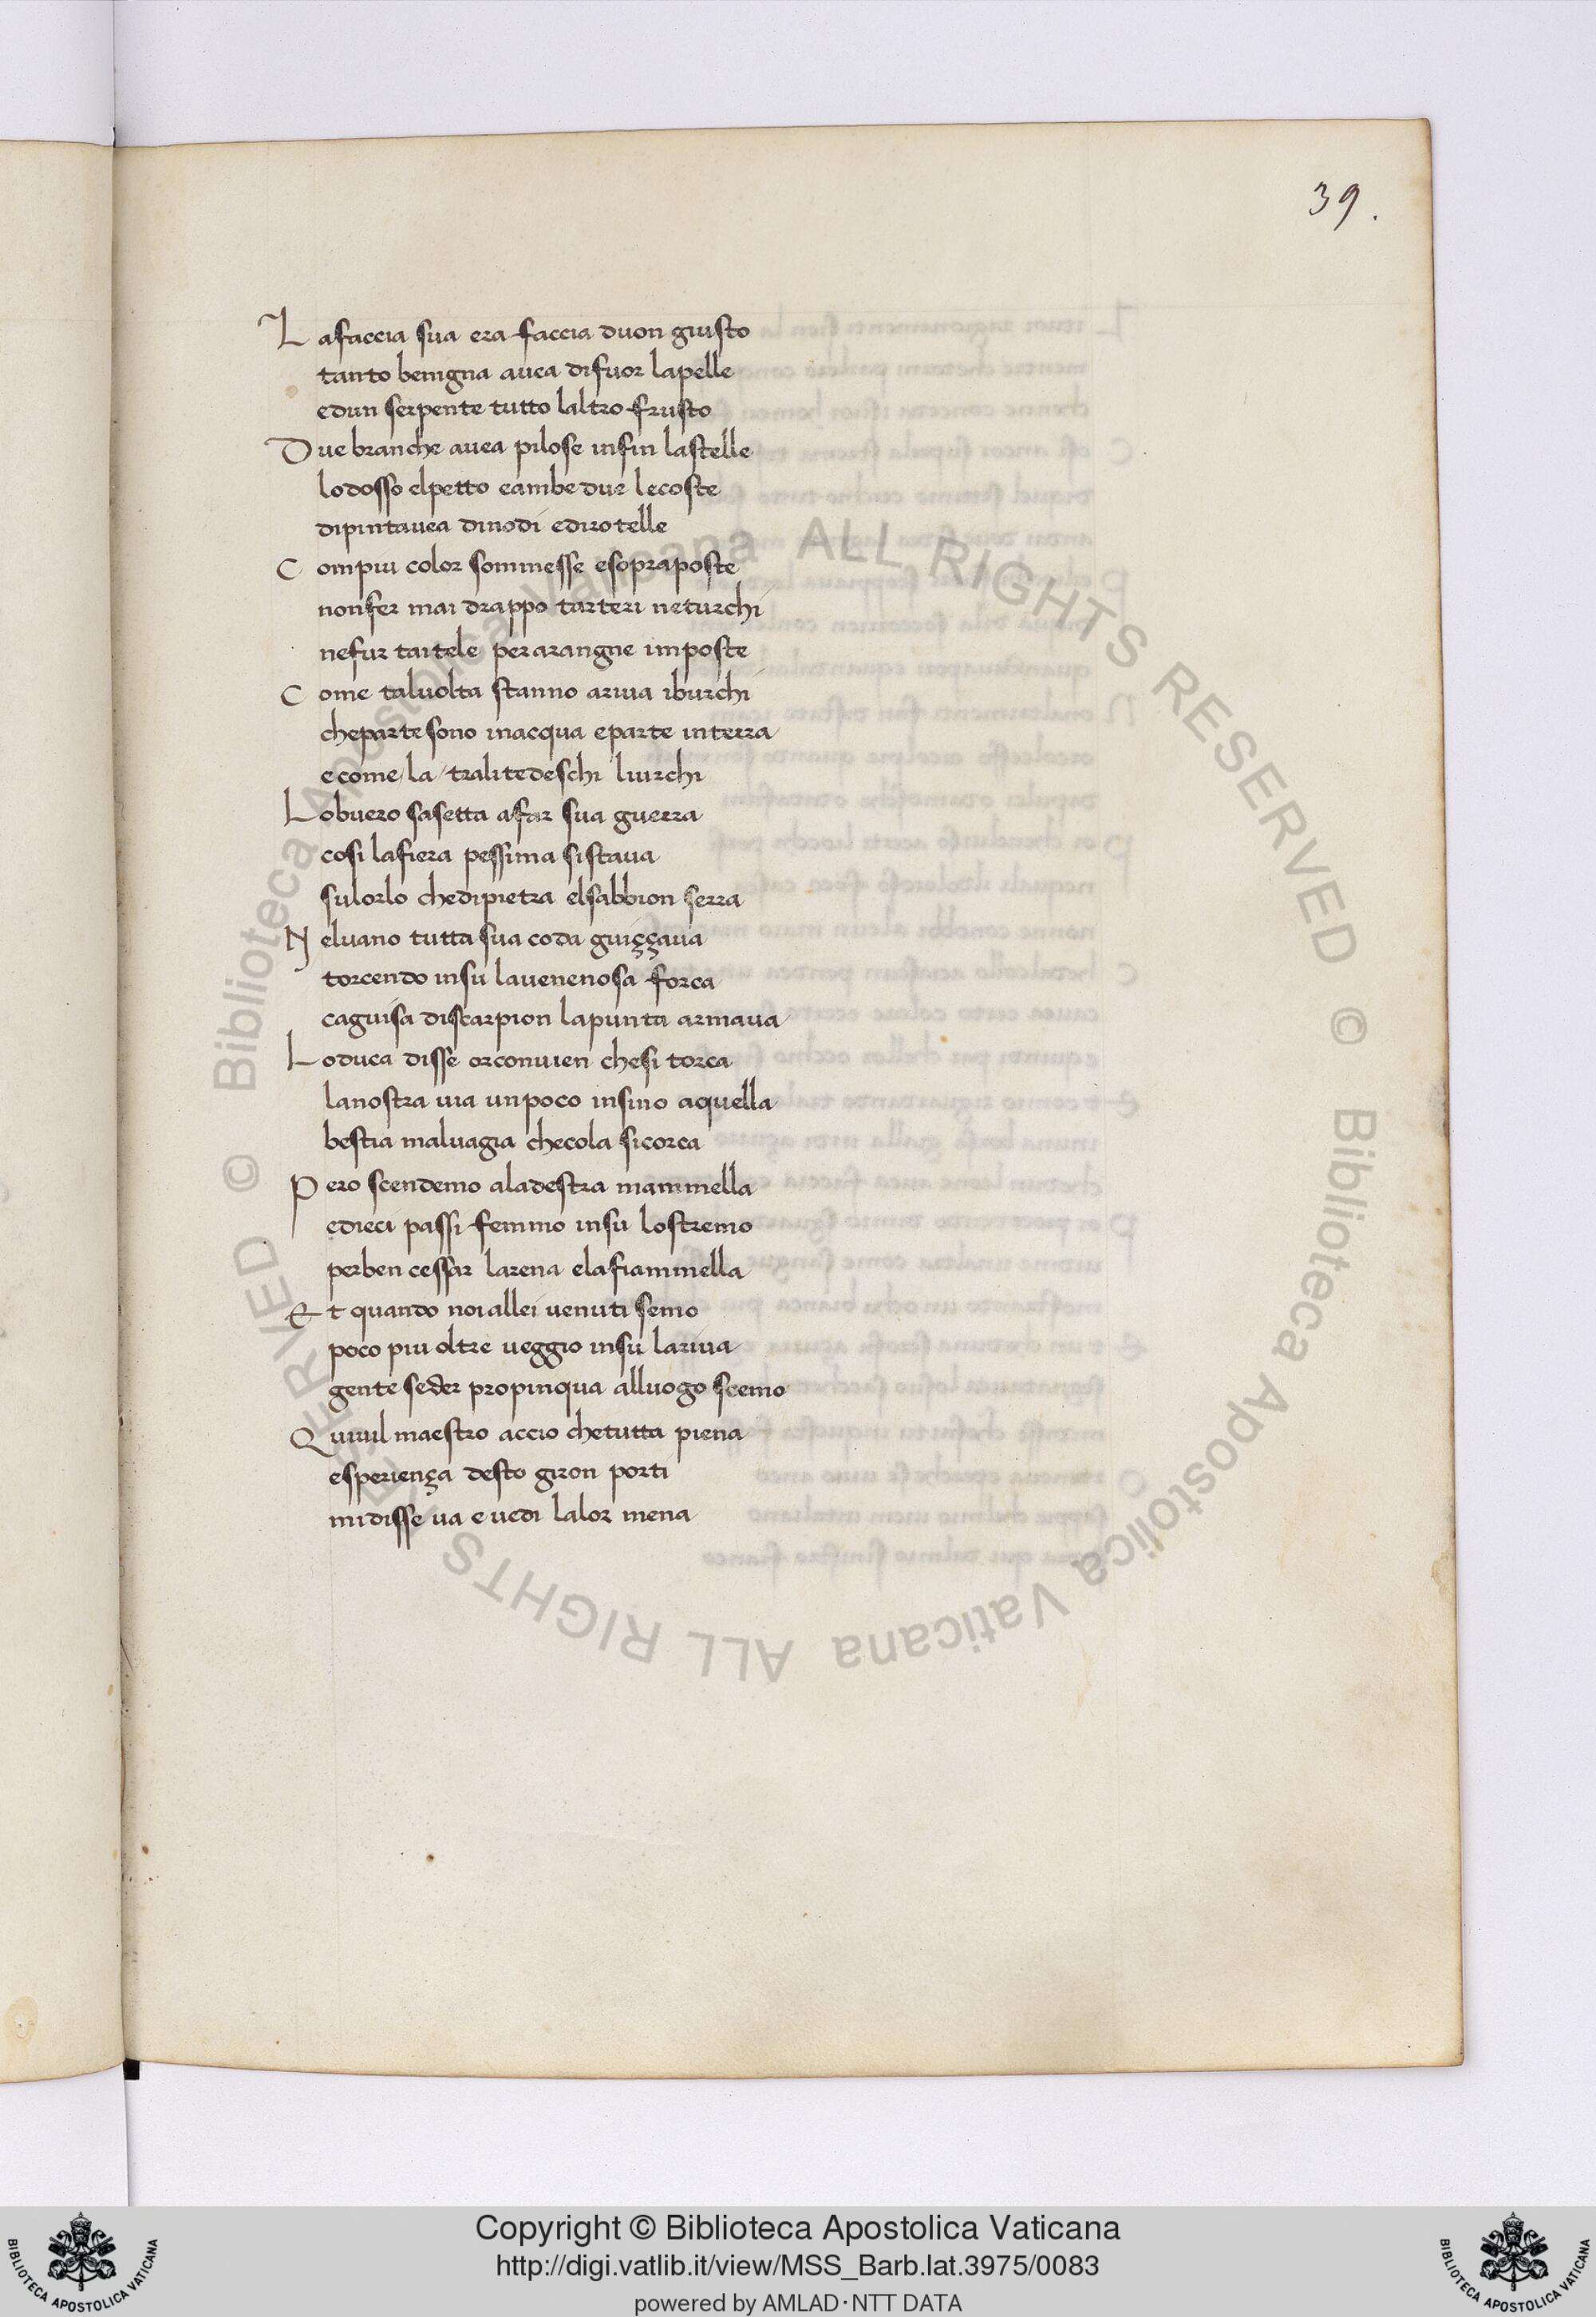 39.
La faccia sua era faccia duon giusto
tanto benigna auea difuor lapelle
edun serpente tutto laltro frusto
Due branche auea pilose infin lascelle
lodosso elpetto eambedue lecoste
dipintauea dinodi edirotelle
Compiu color sommesse esopraposte
nonfer mai drappo tarteri neturchi
nefur taitele perarangne imposte
Come taluolta stanno ariua iburchi
cheparte sono inacqua eparte interra
ecome la tralitedeschi liurchi
Lobuero sasetta afar sua guerra
cosi lafiera pessima sistaua
sulorlo chedipietra elsabbion serra
Neluano tutta sua coda guiççaua
torcendo insu lauenenosa forca
caguisa discarpion lapunta armaua
Loduca disse orconuien chesi torca
lanostra uia unpoco insino aquella
bestia maluagia checola sicorca
Pero scendemo aladestra mammella
edieci passi femmo insu lostremo
perben cessar larena elafiammella
Et quando noi allei uenuti semo
poco piu oltre ueggio insu lariua
gente seder propinqua alluogo scemo
Quiuil maestro accio chetutta piena
esperiença desto giron porti
midisse ua e uedi lalor mena
© Biblioteca Apostolica Vaticana ALL RIGHTS RESERVED © Biblioteca Apostolica Vaticana ALL RIGHTS RESERVED
Copyright © Biblioteca Apostolica Vaticana
http://digi.vatlib.it/view/MSS_Barb.lat.3975/0083
powered by AMLAD·NTT DATA
BIBLIOTECA APOSTOLICA VATICANA
BIBLIOTECA APOSTOLICA VATICANA